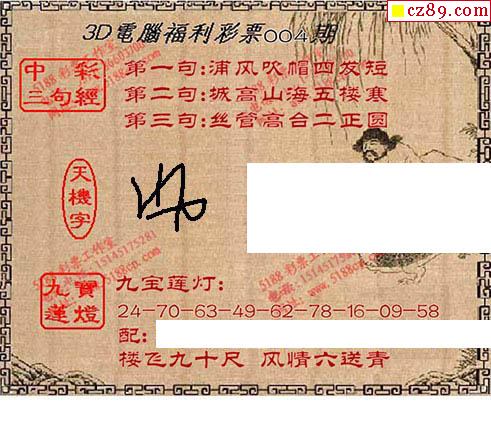 cz89.com
3D電腦福利彩票004期
中彩
三句經
第一句:浦风吹帽四发短
第二句:城高山海五楼寒
第三句:丝管高台二正圆
天機字
九寶
蓮燈
九宝莲灯:
24-70-63-49-62-78-16-09-58
配:
楼飞九十尺 风情六送青
5188 彩票工作室
15145175281